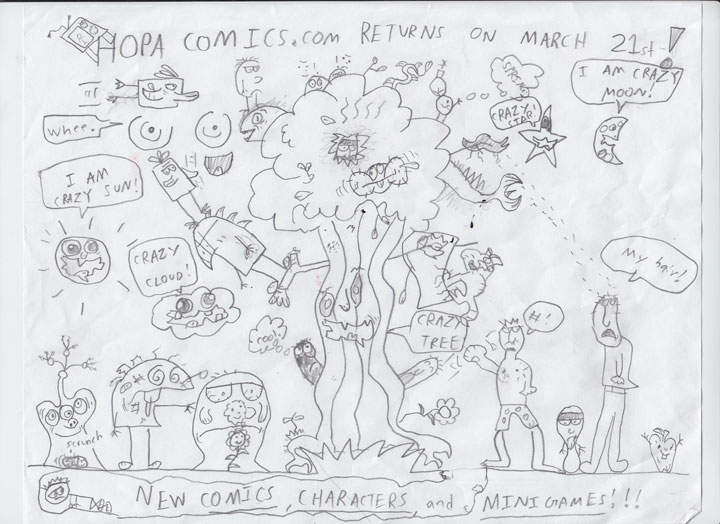 HOPA COMICS.COM RETURNS ON MARCH 21st!
SPACE
I AM CRAZY
MOON!
CRAZY
STAR!
whee.
I AM
CRAZY SUN!
CRAZY
CLOUD!
My hair!
#!
CRAZY
TREE
scrunch
NEW COMICS, CHARACTERS, and MINIGAMES!!!